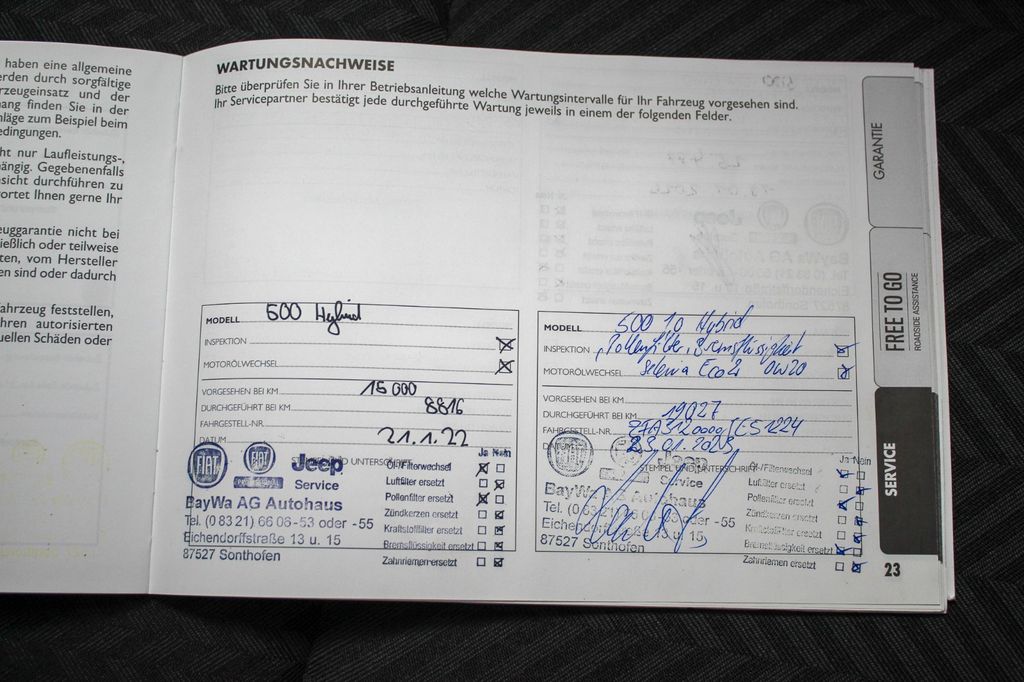 haben eine allgemeine
rden durch sorgfältige
rzeugeinsatz und der
ang finden Sie in der
läge zum Beispiel beim
edingungen.
ht nur Laufleistungs-,
ängig. Gegebenenfalls
sicht durchführen zu
ortet Ihnen gerne Ihr
euggarantie nicht bei
ießlich oder teilweise
ten, vom Hersteller
en sind oder dadurch
ahrzeug feststellen,
hren autorisierten
uellen Schäden oder
WARTUNGSNACHWEISE
Bitte überprüfen Sie in Ihrer Betriebsanleitung welche Wartungsintervalle für Ihr Fahrzeug vorgesehen sind.
Ihr Servicepartner bestätigt jede durchgeführte Wartung jeweils in einem der folgenden Felder.
MODELL 500 Hybrid
INSPEKTION
MOTORÖLWECHSEL
VORGESEHEN BEI KM 15 000
DURCHGEFÜHRT BEI KM 8816
FAHRGESTELL-NR.
DATUM 21.1.22
FIAT Jeep
Service
BayWa AG Autohaus
Tel. (0 83 21) 66 06-53 oder -55
Eichendorffstraße 13 u. 15
87527 Sonthofen
Ja Nein
Öl-/Filterwechsel
Luftfilter ersetzt
Pollenfilter ersetzt
Zündkerzen ersetzt
Kraftstofffilter ersetzt
Bremsflüssigkeit ersetzt
Zahnriemen ersetzt
MODELL 500 1.0 Hybrid
INSPEKTION Pollenfilter, Bremsflüssigkeit
MOTORÖLWECHSEL Selenia Eco2 0W20
VORGESEHEN BEI KM
DURCHGEFÜHRT BEI KM 19027
FAHRGESTELL-NR.
DATUM 23.01.2023
STEMPEL UND UNTERSCHRIFT
Service
BayWa AG Autohaus
Tel. (0 83 21) 66 06-53 oder -55
Eichendorffstraße 13 u. 15
87527 Sonthofen
Ja Nein
Öl-/Filterwechsel
Luftfilter ersetzt
Pollenfilter ersetzt
Zündkerzen ersetzt
Kraftstofffilter ersetzt
Bremsflüssigkeit ersetzt
Zahnriemen ersetzt
GARANTIE
FREE TO GO
ROADSIDE ASSISTANCE
SERVICE
23